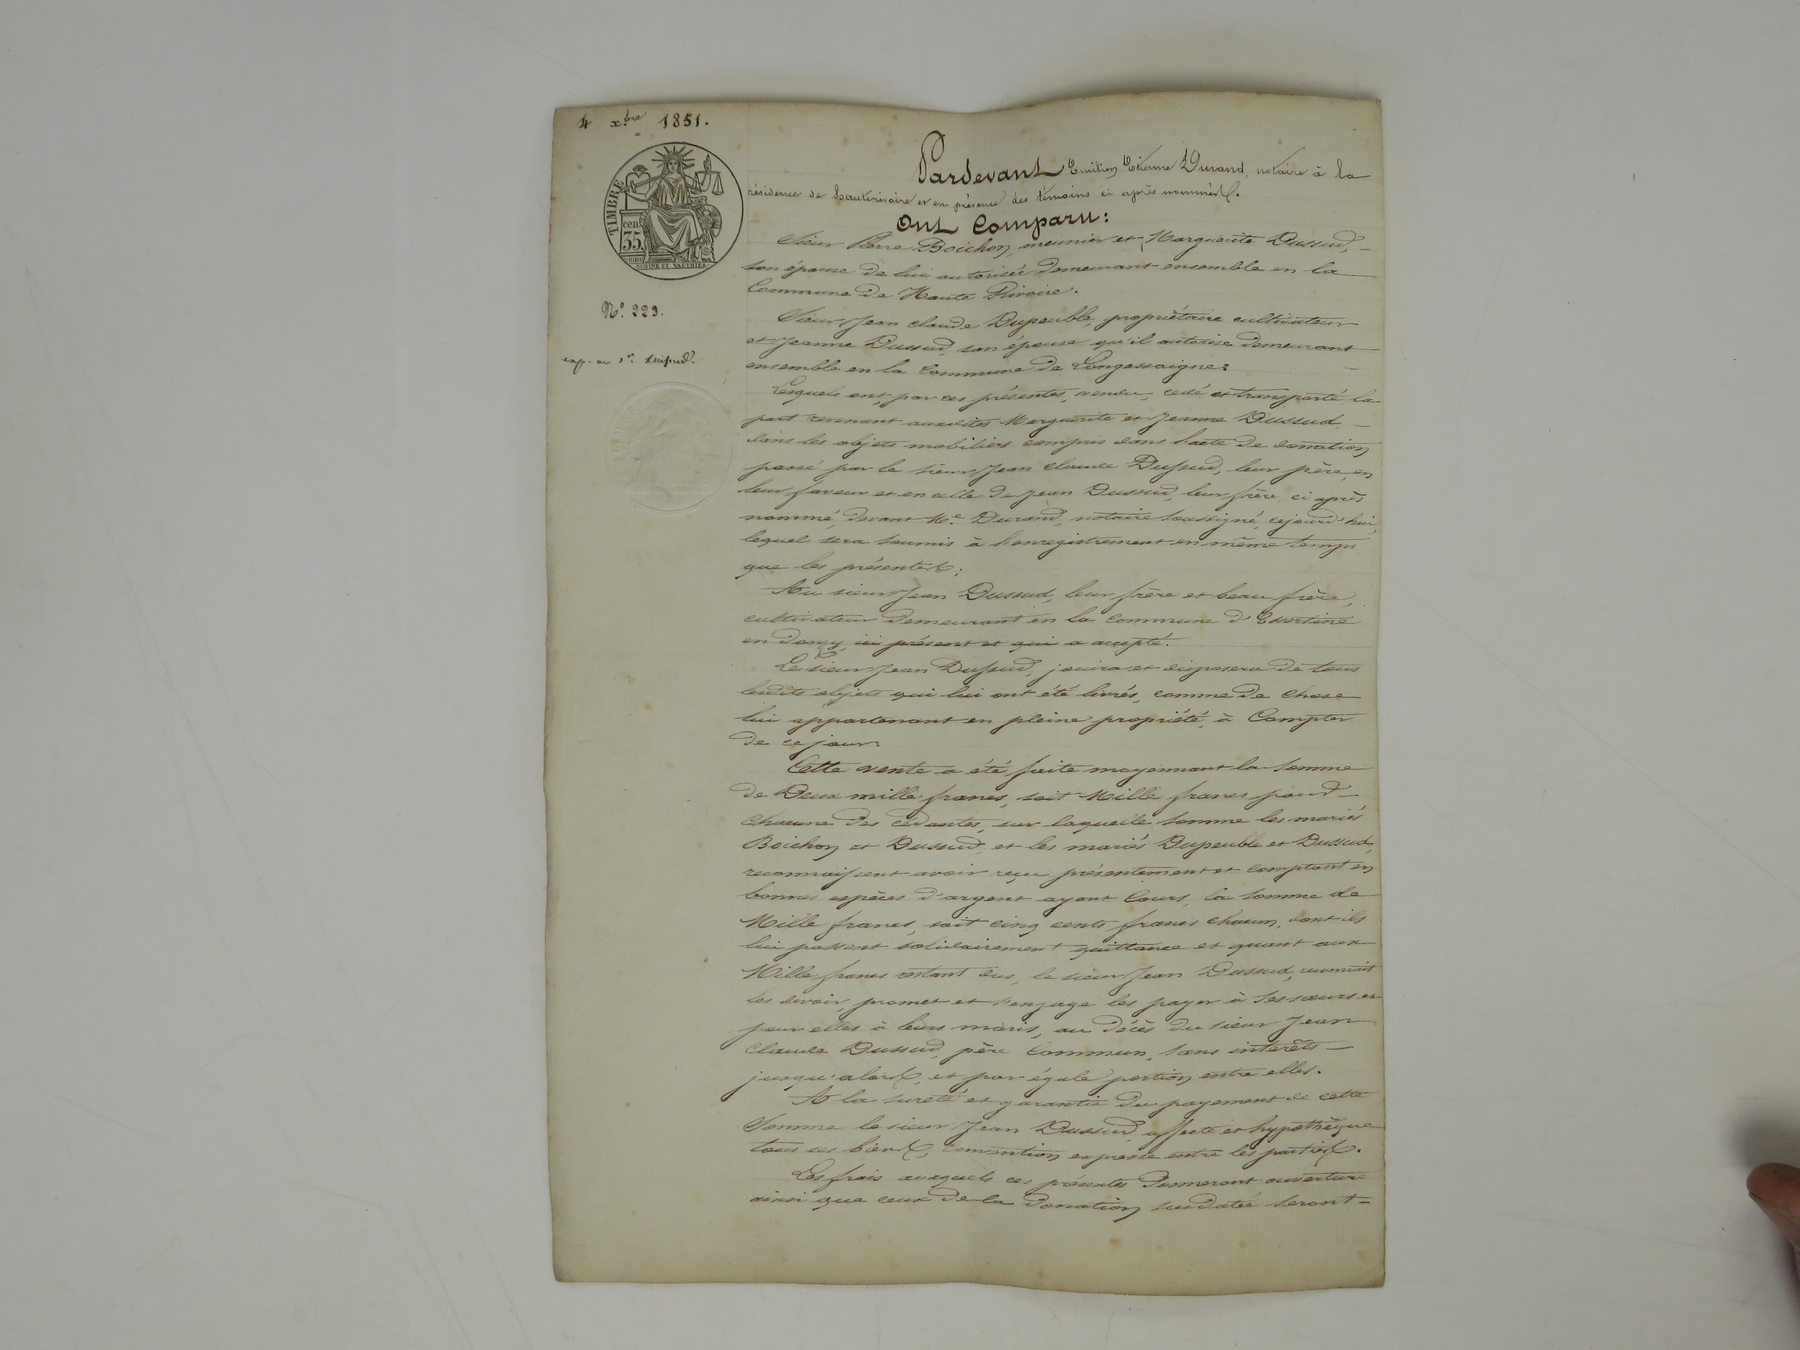 4 xbre 1851.
TIMBRE
cen.
35.
OUDINÉ ET VAUTHIER
N.° 223.
exp. au sr.
Pardevant Emilien Etienne Durand, notaire à la
résidence de hauterivoire et en présence des témoins ci après nommés.
Ont Comparu:
Sieur Pierre Boichon, meunier et Marguerite Dussud,
son épouse de lui autorisée demeurant ensemble en la
Commune de Haute Rivoire.
Sieur Jean Claude Dupeuble, propriétaire cultivateur
et Jeanne Dussud, son épouse qu'il autorise demeurant
ensemble en la Commune de Longessaigne;
Lesquels ont, par ces présentes, vendu, cédé et transporté la
part revenant auxdites Marguerite et Jeanne Dussud
dans les objets mobiliers compris dans l'acte de donation
passé par le sieur Jean Claude Dussud, leur père, en
leur faveur et en celle de Jean Dussud, leur frère ci après
nommé, devant Me. Durand, notaire soussigné, cejourd'hui,
lequel sera soumis à l'enregistrement en même temps
que les présentes;
Au sieur Jean Dussud, leur frère et beau frère,
cultivateur demeurant en la commune d'Essertine
en donzy, ici présent et qui a accepté.
Le sieur Jean Dussud, jouira et disposera de tous
lesdits objets qui lui ont été livrés, comme de chose
lui appartenant en pleine propriété, à Compter
de ce jour.
Cette vente a été faite moyennant la somme
de Deux mille francs, soit Mille francs pour
chacune des cédantes, sur laquelle somme les mariés
Boichon et Dussud, et les mariés Dupeuble et Dussud,
reconnaissent avoir reçu présentement et comptant en
bonnes espèces d'argent ayant Cours, la somme de
Mille francs, soit cinq cents francs chacun, dont ils
lui passent solidairement quittance et quant aux
Mille francs restant dus, le sieur Jean Dussud, reconnait
les devoir, promet et s'engage les payer à ses sœurs et
pour elles à leurs maris, au décès du sieur Jean
Claude Dussud, père Commun, sans intérêts
jusqu'alors, et par égale portion entre elles.
A la sureté et garantie du payement de cette
Somme le sieur Jean Dussud, affecte et hypothèque
tous ses biens, convention expresse entre les parties.
Les frais auxquels ces présentes donneront ouverture
ainsi que ceux de la donation susdatée seront